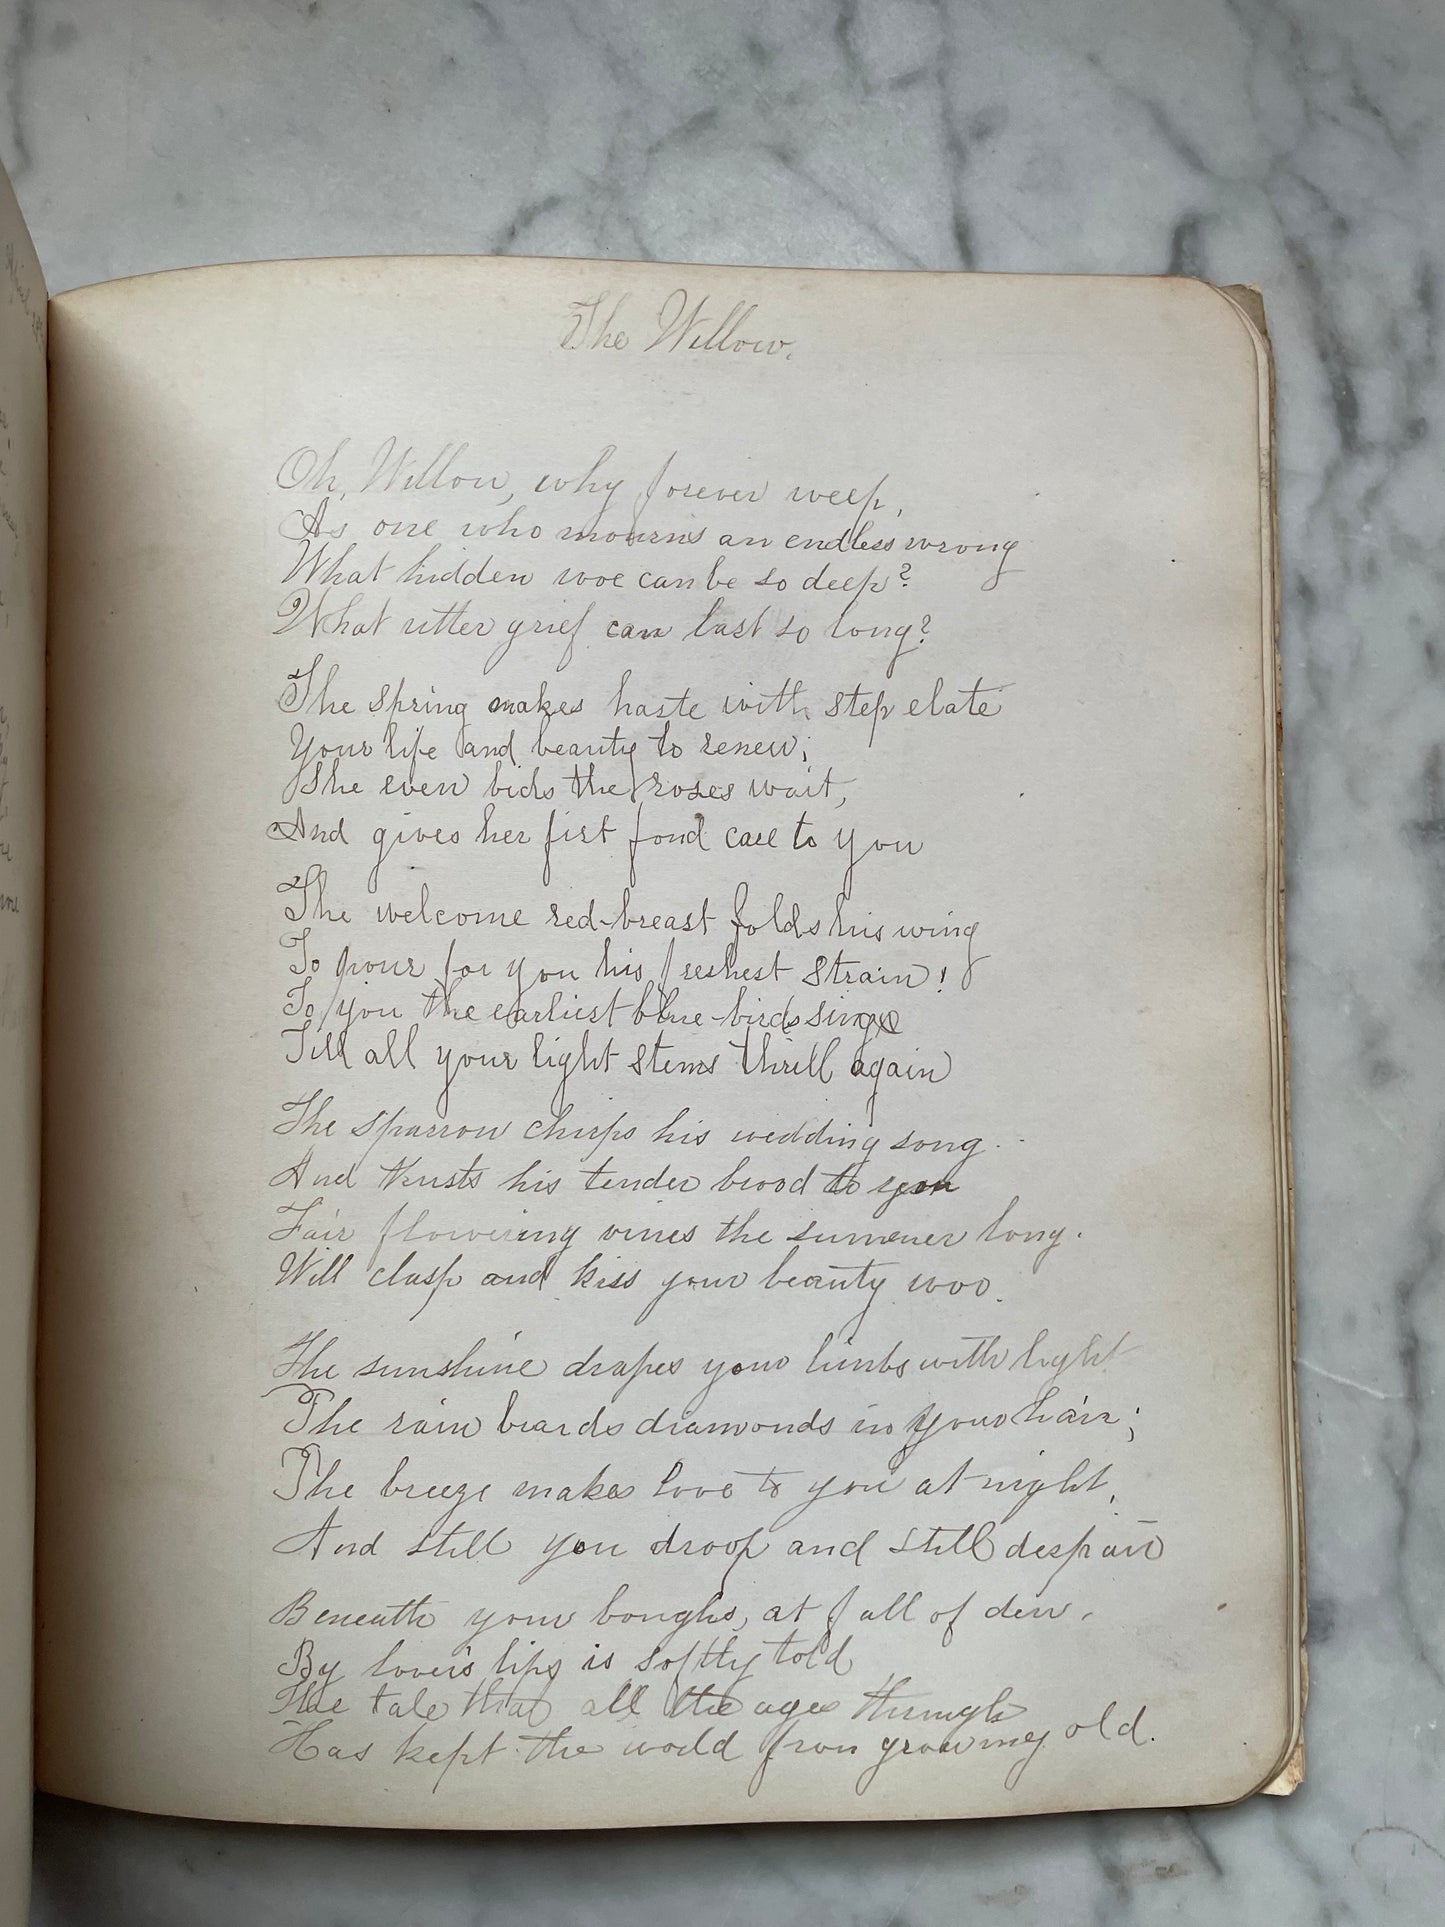 The Willow.
Oh, Willow, why forever weep,
As one who mourns an endless wrong
What hidden woe can be so deep?
What utter grief can last so long?
The spring makes haste with step elate
Your life and beauty to renew;
She even bids the roses wait,
And gives her fist fond care to you
The welcome red-breast folds his wing
To pour for you his freshest strain!
To you the earliest blue-birds sing
Till all your light stems thrill again
The sparrow chirps his wedding song.
And trusts his tender brood to you
Fair flowering vines the summer long.
Will clasp and kiss your beauty woo.
The sunshine drapes your limbs with light
The rain beards diamonds in your hair;
The breeze makes love to you at night,
And still you droop and still despair
Beneath your boughs, at fall of dew,
By lover's lips is softly told
The tale that all the ages through
Has kept the world from growing old.